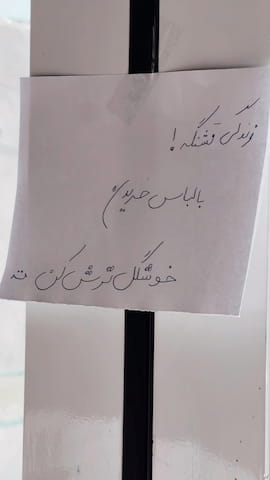 زندگی قشنگه!
با لباس خریدن
خوشگل ترش کن